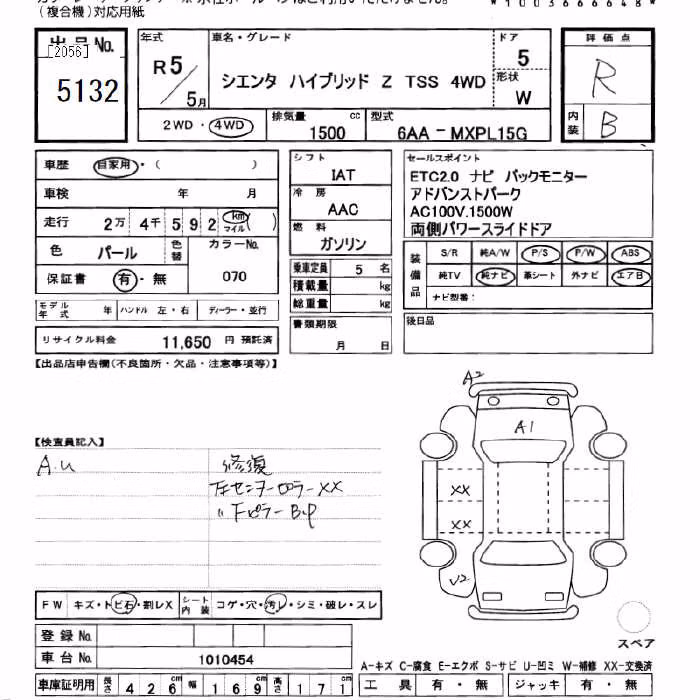 (複合機)対応用紙
*1003666648*
出品No.
[2056]
5132
年式
R5
5月
車名・グレード
シエンタ ハイブリッド Z TSS 4WD
ドア
5
形状
W
2WD・4WD
排気量
1500 cc
型式
6AA-MXPL15G
評価点
R
内装
B
車歴 自家用・( )
車検 年 月
走行 2万 4千 5 9 2 km マイル ( )
色 パール 色替 カラーNo.
保証書 有・無 070
モデル年式 年 ハンドル 左・右 ディーラー・並行
リサイクル料金 11,650 円 預託済
シフト
IAT
冷房
AAC
燃料
ガソリン
乗車定員 5 名
積載量 kg
総重量 kg
書類期限
月 日
セールスポイント
ETC2.0 ナビ バックモニター
アドバンストパーク
AC100V.1500W
両側パワースライドドア
装備品
S/R 純A/W P/S P/W ABS
純TV 純ナビ 革シート 外ナビ エアB
ナビ型番:
後日品
【出品店申告欄(不良箇所・欠品・注意事項等)】
【検査員記入】
A.u
修復
左センターピラーXX
〃 Fピラー B.P
A2
A1
XX
XX
U2
FW キズ・トビ石・割レX シート内装 コゲ・穴・汚レ・シミ・破レ・スレ
登録No.
車台No. 1010454
車庫証明用 長さ 426 cm 幅 169 cm 高さ 171 cm
スペア
A-キズ C-腐食 E-エクボ S-サビ U-凹ミ W-補修 XX-交換済
工具 有・無 ジャッキ 有・無